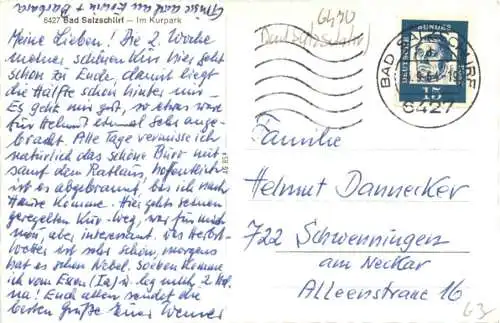 6427 Bad Salzschlirf — Im Kurpark
Meine Lieben! Die 2. Woche
meiner schönen Kur hier geht
schon zu Ende, damit liegt
die Hälfte schon hinter mir.
Es geht mir gut, so etwas wäre
für Helmut einmal sehr ange-
bracht. Alle Tage vermisse ich
natürlich das schöne Büro mit-
samt dem Rathaus, hoffentlich
ist es abgebrannt, bis ich nach
Hause komme. Hier geht seinen
geregelten Kur-Weg, was für mich
neu, aber interessant. Das Herbst-
wetter ist sehr schön, morgens
hat es schon Nebel. Soeben komme
ich vom Essen (Ia) u. leg mich 2 Std.
na! Euch allen sendet die
besten Grüße Euer Werner
6430
Bad Salzschlirf
DEUTSCHE BUNDESPOST
15
BAD SALZSCHLIRF
6427
Familie
Helmut Dannecker
722 Schwenningen
am Neckar
Alleenstrasse 16
63